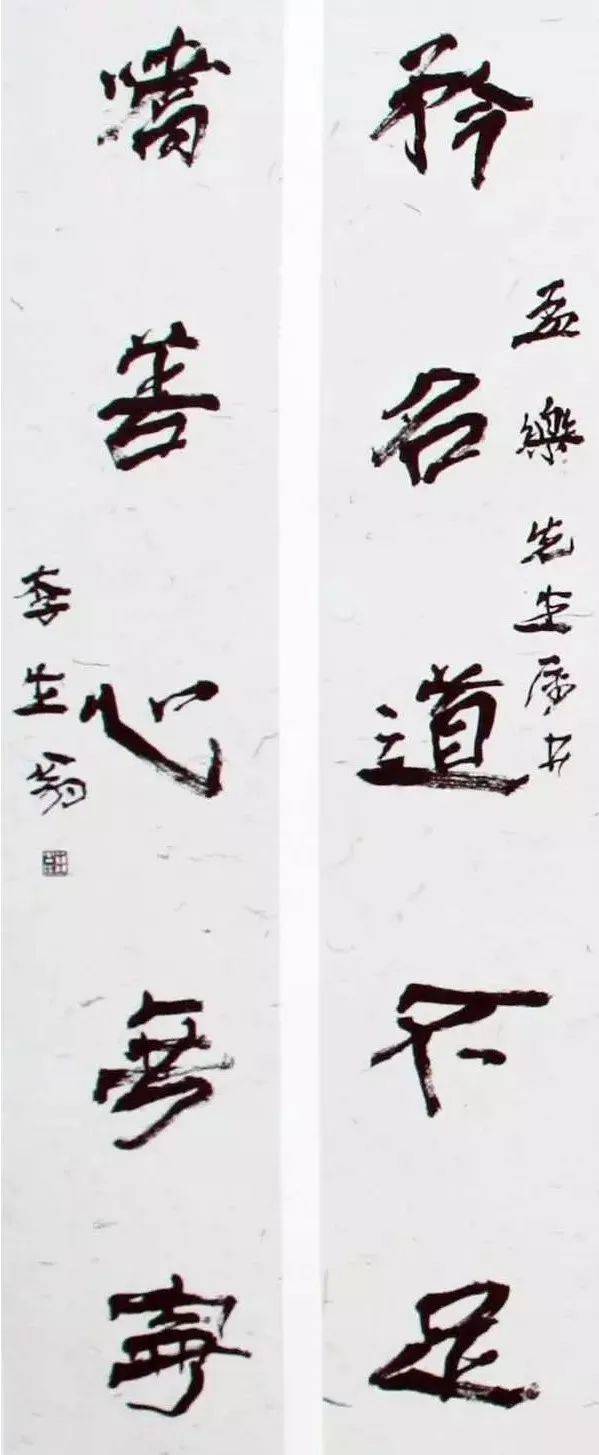 孟樂先生屬書
矜名道不足
嗜善心無寧
李生翁